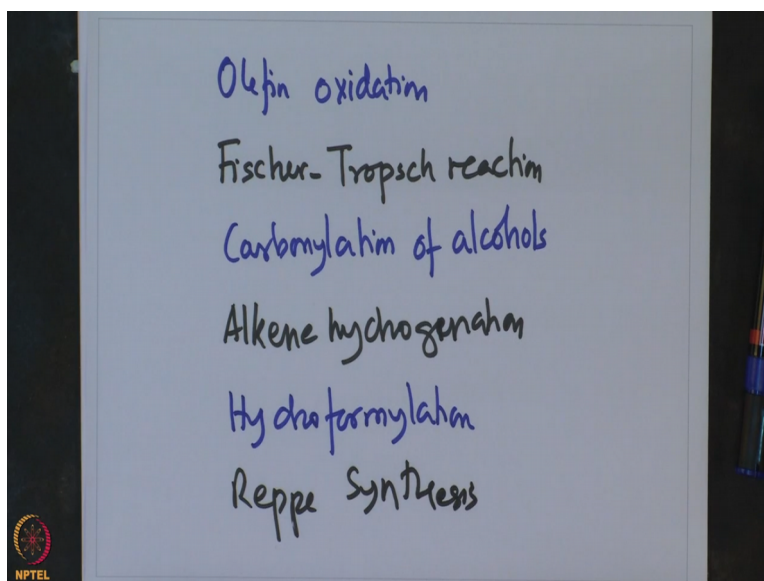 Olefin oxidation
Fischer-Tropsch reaction
Carbonylation of alcohols
Alkene hydrogenation
Hydroformylation
Reppe Synthesis
NPTEL